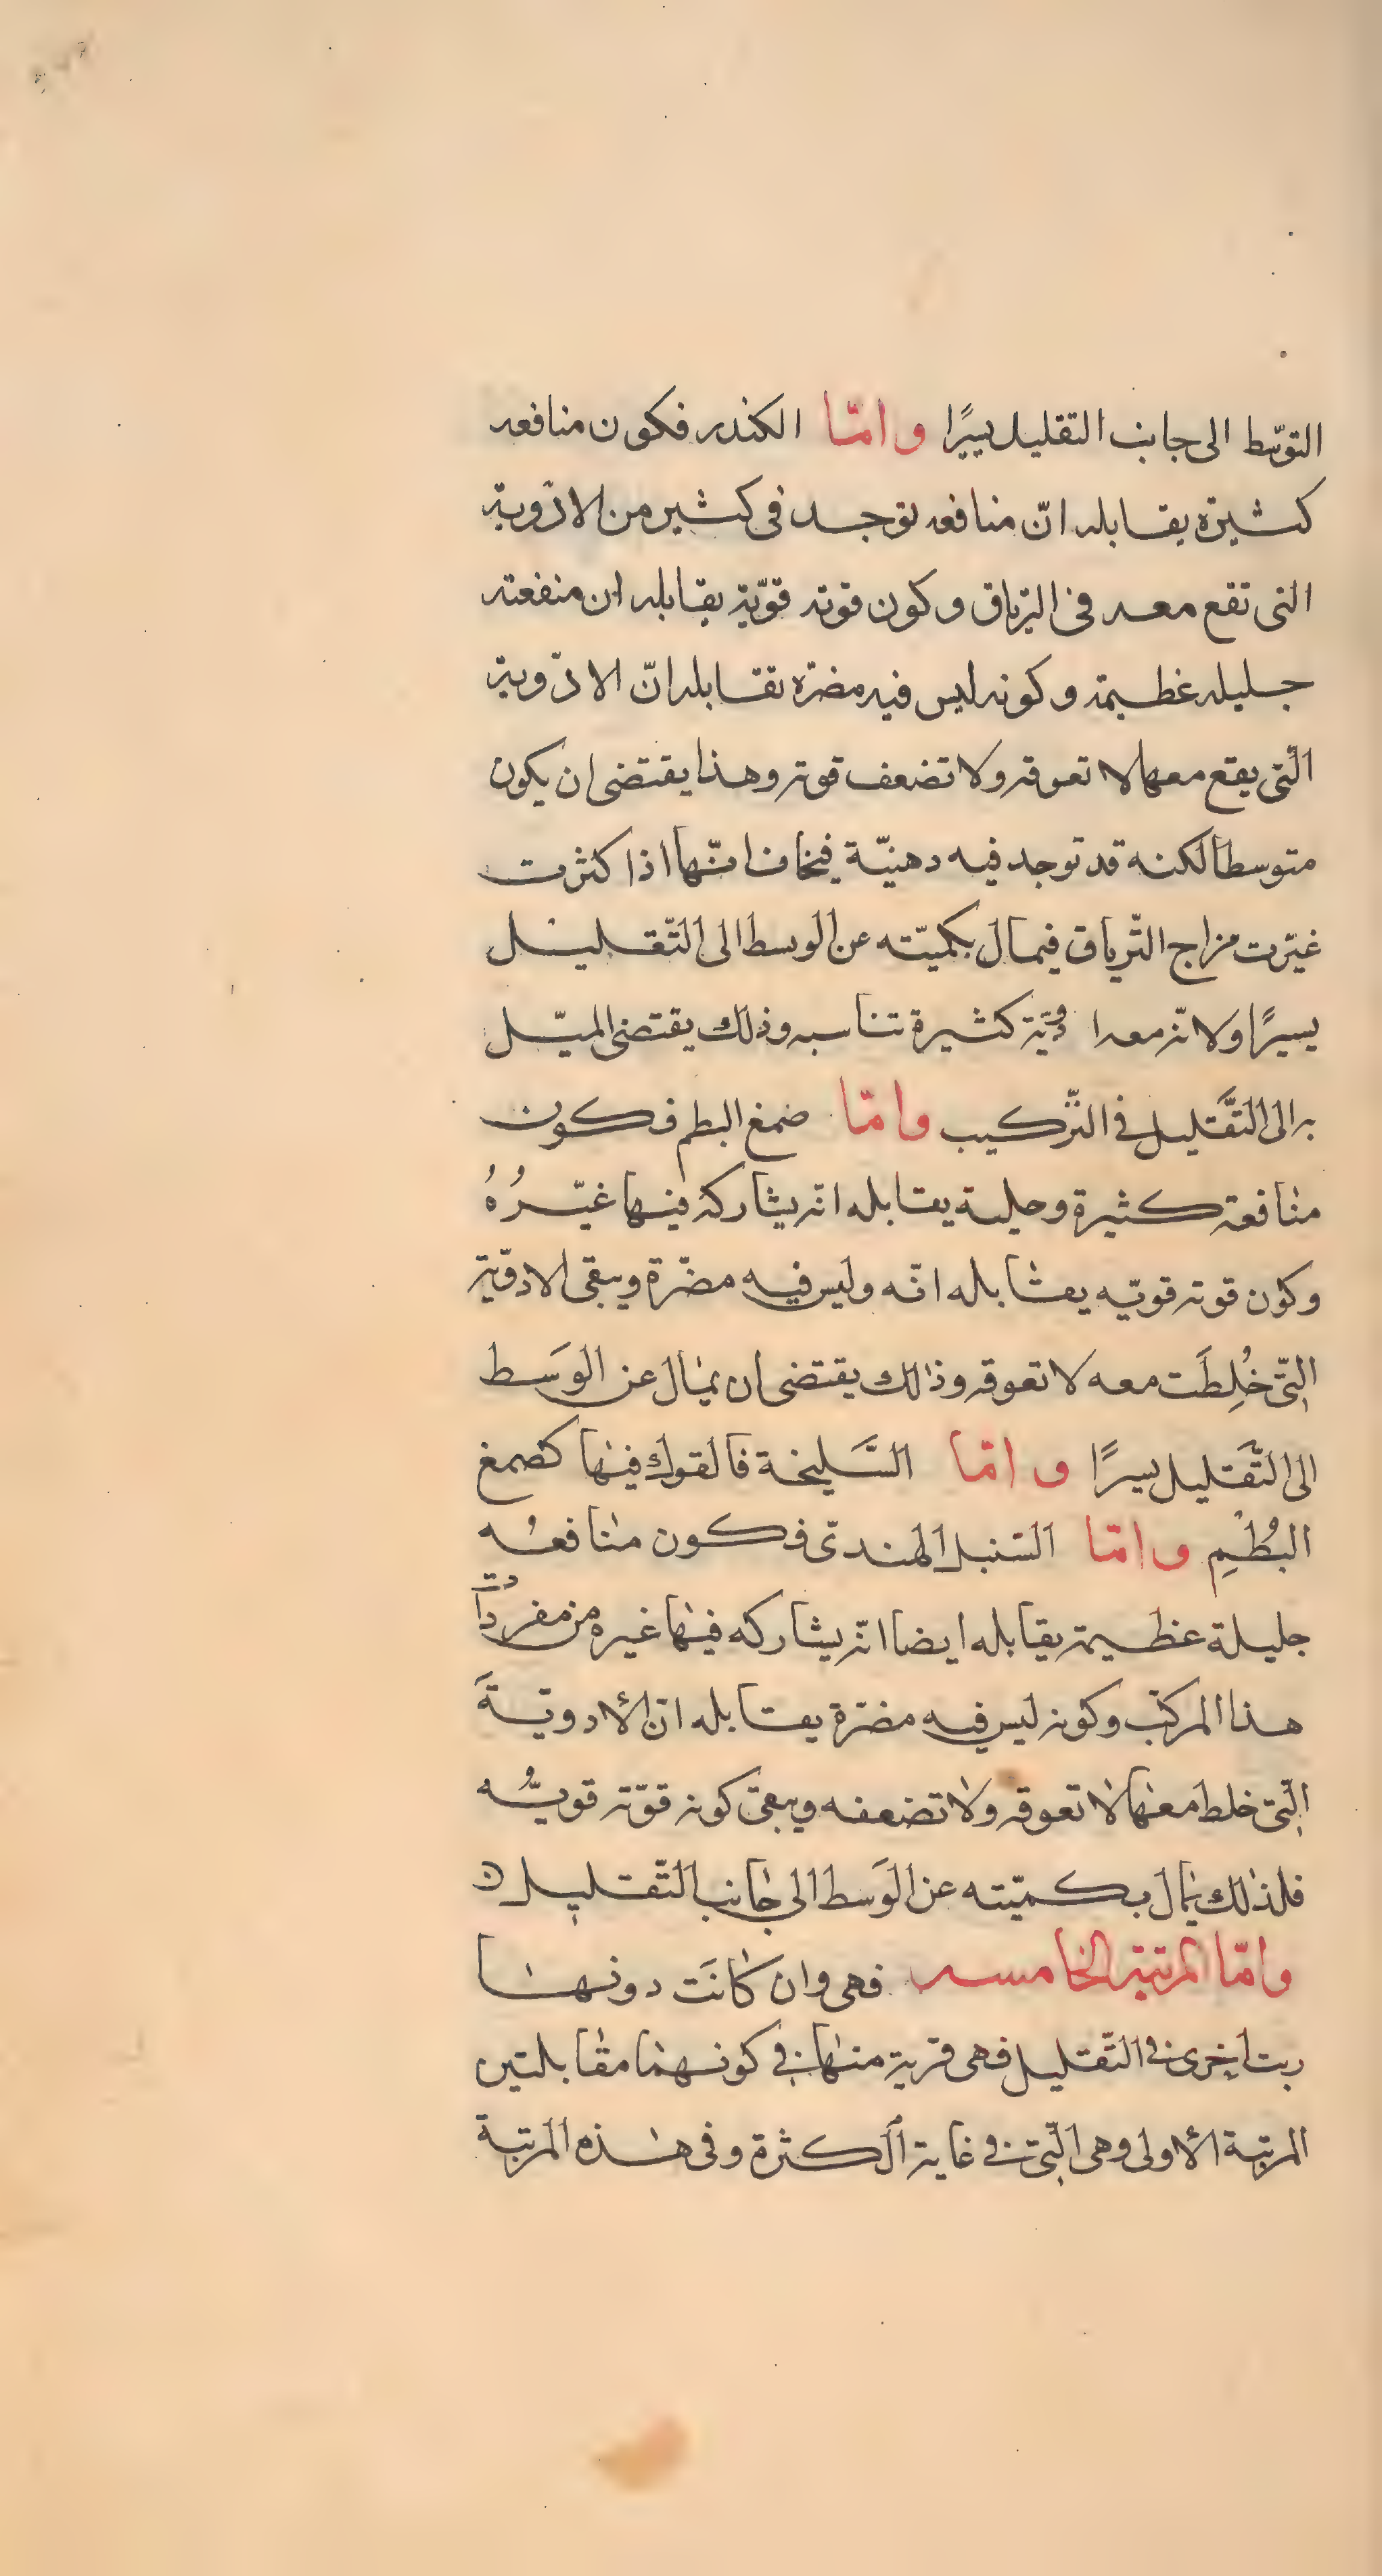 التوسّط الى جانب التقليل يسيرًا وامّا الكندر فكون منافعه
كثيرة يقابله انّ منافعه توجد فى كثير من الادوية
التى تقع معه فى الترياق وكون قوته قويّة يقابله ان منفعته
جليله عظيمة وكونه ليس فيه مضرّه تقابله انّ الادوية
الّتى يقع معها لا تعوقه ولا تضعف قوته وهذا يقتضى ان يكون
متوسطا لكنه قد توجد فيه دهنيّة فيخاف انّها اذا كثرت
غيّرت مزاج التّرياق فيمال بكميّته عن الوسط الى التّقليل
يسيرًا ولانّه معه ادوية كثيرة تناسبه وذلك يقتضى الميل
به الى التَّقليل فى التّركيب وامّا صمغ البطم فكون
منافعه كثيرة وجليلة يقابله انّه يشاركه فيها غيرُهُ
وكون قوته قويّه يقابله انّه وليس فيه مضرّة ويبقى الادوية
الّتى خُلِطَت معه لا تعوقه وذلك يقتضى ان يمال عن الوَسط
الى التَّقليل يسيرًا وامّا السَّليخة فالقول فيها كصمغ
البُطْمِ وامّا السنبل الهندىّ فكون منافعُه
جليلة عظيمة يقابله ايضا انّه يشاركه فيها غيره من مفردات
هذا المركّب وكونه ليس فيه مضرّة يقابله انّ الأدويةَ
الّتى خلط معها لا تعوقه ولا تضعفه ويبقى كونه قوّته قويّه
فلذلك يمال بكميّته عن الوَسط الى جانب التّقليل
وامّا المرتبة الخامسه فهى وان كانَت دونها
رتبا اخرى فى التّقليل فهى قريبة منها فى كونهما مقابلتين
المرتبة الأولى وهى الّتى فى غاية الكثرة وفى هذه المرتبة